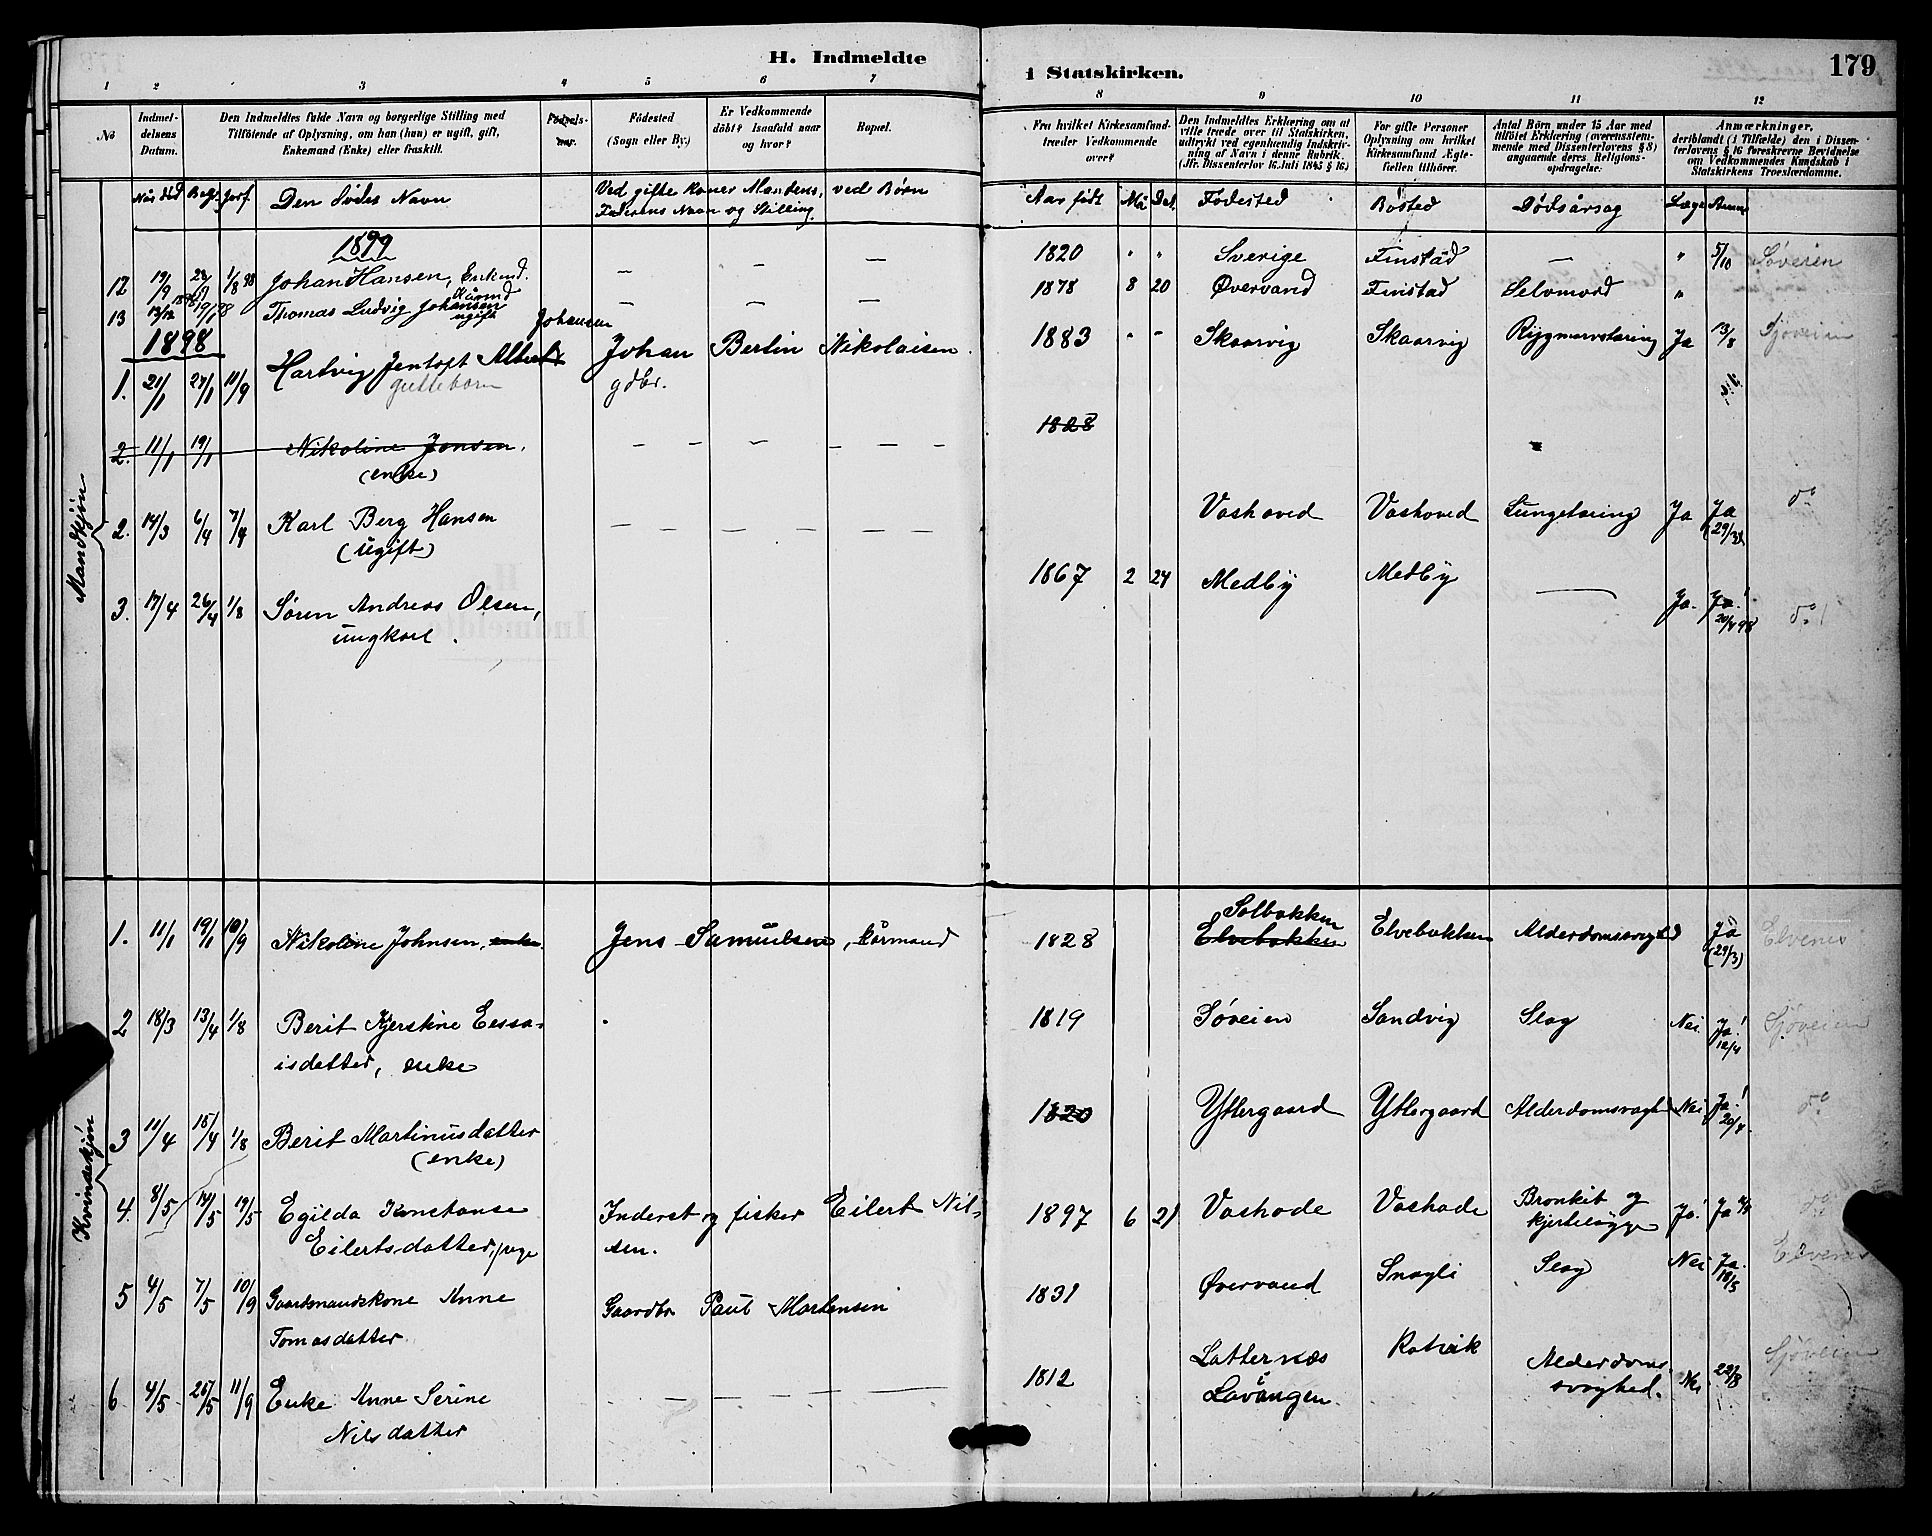 H. Indmeldte
i Statskirken.
179
1 2 3 4 5 6 7 8 9 10 11 12
No
Indmeldelsens Datum.
Den Indmeldtes fulde Navn og borgerlige Stilling med Tilföiende af Oplysning, om han (hun) er ugift, gift, Enkemand (Enke) eller fraskilt.
Födsels-aar.
Födested (Sogn eller By.)
Er Vedkommende döbt? Isaafald naar og hvor?
Bopæl.
Fra hvilket Kirkesamfund træder Vedkommende over?
Den Indmeldtes Erklæring om at ville træde over til Statskirken, udtrykt ved egenhændig Indskrivning af Navn i denne Rubrik. (Jfr. Dissenterlov 16. Juli 1845 § 16)
For gifte Personer Oplysning om hvilket Kirkesamfund Ægtefællen tilhörer.
Antal Börn under 15 Aar med tilföiet Erklæring (overensstemmende med Dissenterlovens § 8) angaaende deres Religions-opdragelse.
Anmærkninger, deriblandt (i Tilfælde) den i Dissenterlovens § 16 foreskrevne Bevidnelse om Vedkommendes Kundskab i Statskirkens Troeslærdomme.
Naar död Begr. Jordf. Den Dødes Navn
Ved gifte Koner Mandens, ved Børn Faderens Navn og Stilling.
Aar født Md. Dag Fødested Bosted Dødsårsag Læge Anm
1899
12 19/9 1/8 98 Johan Hansen, Enkmd. — — — 1820 " " Sverige Finstad — " 5/10 Søveien
13 13/12 Thomas Ludvig Johansen ugift — — — 1878 8 20 Øvervand Finstad Selvmord "
1898
1. 21/1 27/1 11/9 Hartvig Jentoft Albert Johansen guttebarn
Johan Bertin Nikolaisen gdbr.
1883 " - Skaarvig Skaarvig Rygmarvstæring Ja 13/8 Sjøveien
2. 11/1 19/1 Nikoline Jensen, (enke) — — — — — — 1828
Mandkjøn
2. 14/3 6/4 7/4 Karl Berg Hansen (ugift) — — — — — — Vashoved Vashoved Lungetæring Ja Ja do
3. 17/4 26/4 1/8 Søren Andreas Olsen, ungkarl. 1867 2 24 Medby Medby — Ja. Ja! 20/4 98 do
1. 11/1 19/1 10/9 Nikoline Johnsen, enke. Jens Samuelsen, kårmand 1828 Solbakken Elvebakken Elvebakken Alderdomssvaghed Ja (29/3) Elvenes
2 18/3 13/4 1/8 Berit Kjerstine Eessaisdatter, enke 1819 Søveien Sandvig Slag Nei Ja! 12/4 Sjøveien
Kvindekjøn
3 11/4 15/4 1/8 Berit Martinusdatter (enke) 1820 Yttergaard Yttergaard Alderdomsvaghed Nei Ja! 20/4 do
4. 8/5 14/5 19/5 Egilda Konstanse Eilertsdatter, pige Inderst og fisker Eilert Nilsen. 1897 6 21 Vashode Vashode Bronkit og kjertelsyge Ja! Ja do
5 4/5 7/5 10/9 Gaardmandskone Anne Tomasdatter Gaardbr. Paul Mortensen 1831 Øvervand Snogli Slag Nei Ja. 18/5 Elvenes
6 4/5 25/5 11/9 Enke Anne Serine Nilsdatter — — — — — 1812 Latternæs Lavangen. Rotvik Alderdomssvaghed. Nei 22/8 Sjøveien